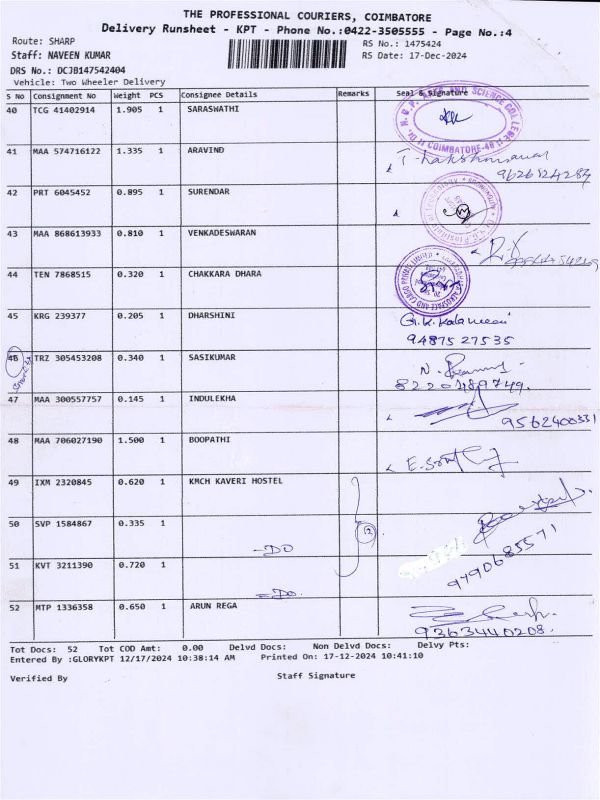 THE PROFESSIONAL COURIERS, COIMBATORE
Delivery Runsheet - KPT - Phone No.:0422-3505555 - Page No.:4
Route: SHARP RS No.: 1475424
Staff: NAVEEN KUMAR RS Date: 17-Dec-2024
DRS No.: DCJB147542404
Vehicle: Two Wheeler Delivery
S No Consignment No Weight PCS Consignee Details Remarks Seal & Signature
40 TCG 41402914 1.905 1 SARASWATHI
ARTS AND SCIENCE COLLEGE
COIMBATORE-48
41 MAA 574716122 1.335 1 ARAVIND
42 PRT 6045452 0.895 1 SURENDAR
43 MAA 868613933 0.810 1 VENKADESWARAN
44 TEN 7868515 0.320 1 CHAKKARA DHARA
45 KRG 239377 0.205 1 DHARSHINI
9487527535
46 TRZ 305453208 0.340 1 SASIKUMAR
8220489749.
47 MAA 300557757 0.145 1 INDULEKHA
9562400331
48 MAA 706027190 1.500 1 BOOPATHI
49 IXM 2320845 0.620 1 KMCH KAVERI HOSTEL
50 SVP 1584867 0.335 1
-DO
9790685571
51 KVT 3211390 0.720 1
-DO.
52 MTP 1336358 0.650 1 ARUN REGA
9363440208.
Tot Docs: 52 Tot COD Amt: 0.00 Delvd Docs: Non Delvd Docs: Delvy Pts:
Entered By :GLORYKPT 12/17/2024 10:38:14 AM Printed On: 17-12-2024 10:41:10
Verified By Staff Signature